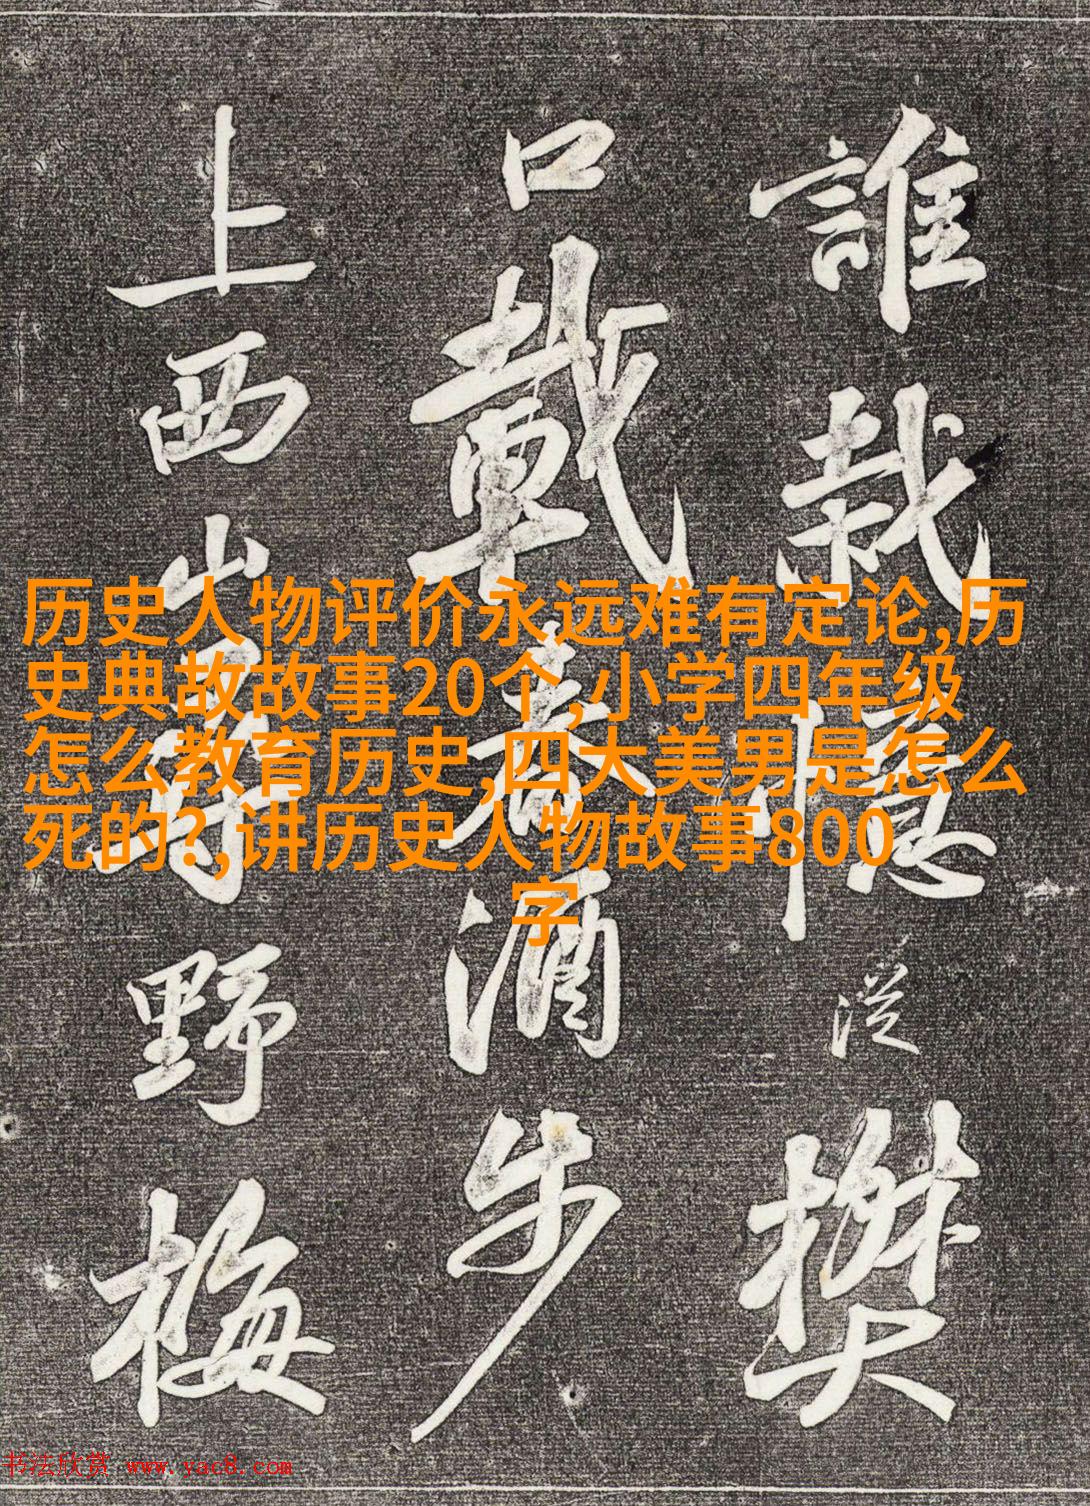 誰栽憶從樊
口載春酒步
上西山尋野梅
历史人物评价永远难有定论,历
史典故故事20个,小学四年级
怎么教育历史,四大美男是怎么
死的?,讲历史人物故事800
字
书法欣赏 www.yac8.com